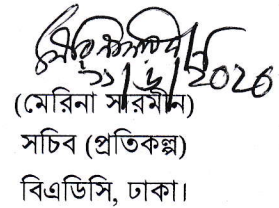 ২১/৬/2026
(মেরিনা সারমীন)
সচিব (প্রতিকল্প)
বিএডিসি, ঢাকা।